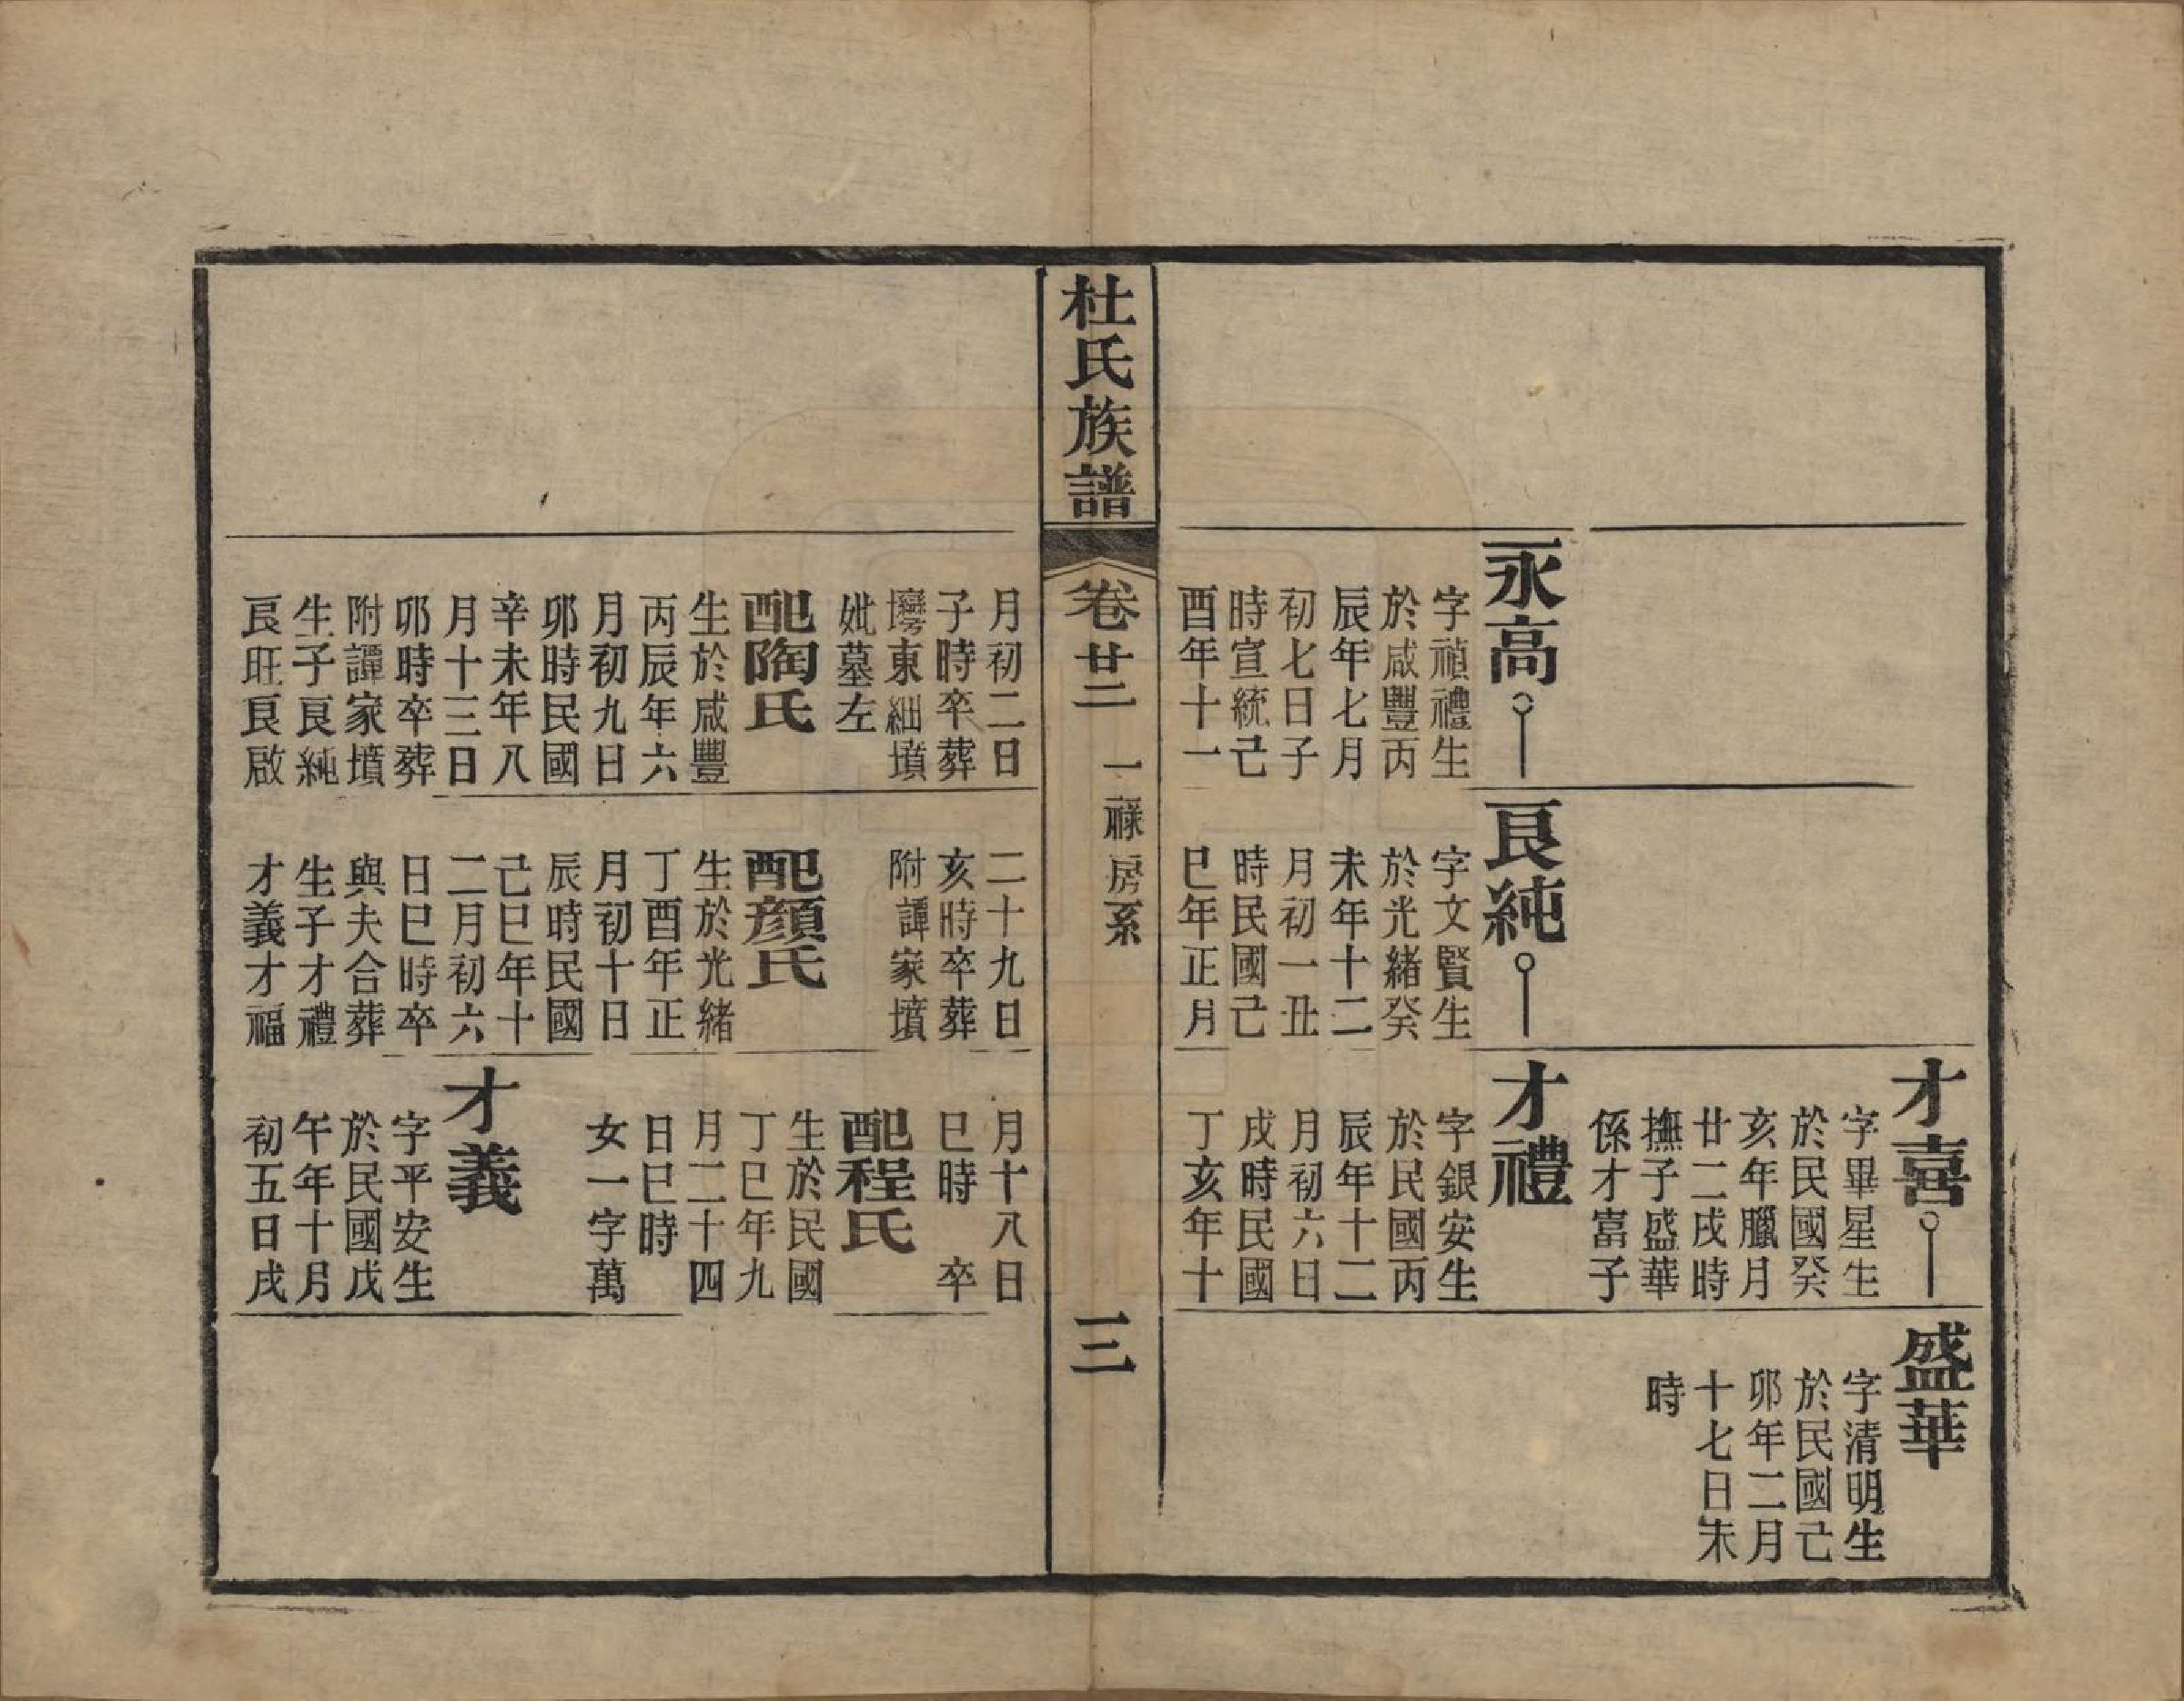 永高
字禎禮生
於咸豐丙
辰年七月
初七日子
時宣統己
酉年十一
良純
字文賢生
於光緒癸
未年十二
月初一丑
時民國己
巳年正月
才喜
字畢星生
於民國癸
亥年臘月
廿二戌時
撫子盛華
係才富子
才禮
字銀安生
於民國丙
辰年十二
月初六日
戌時民國
丁亥年十
盛華
字清明生
於民國己
卯年二月
十七日未
時
杜氏族譜
卷廿二
一祿房系
三
月初二日
子時卒葬
塆東細墳
妣墓左
配陶氏
生於咸豐
丙辰年六
月初九日
卯時民國
辛未年八
月十三日
卯時卒葬
附譚家墳
生子良純
良旺良啟
二十九日
亥時卒葬
附譚家墳
配顏氏
生於光緒
丁酉年正
月初十日
辰時民國
己巳年十
二月初六
日巳時卒
與夫合葬
生子才禮
才義才福
月十八日
巳時卒
配程氏
生於民國
丁巳年九
月二十四
日巳時
女一字萬
才義
字平安生
於民國戊
午年十月
初五日戌